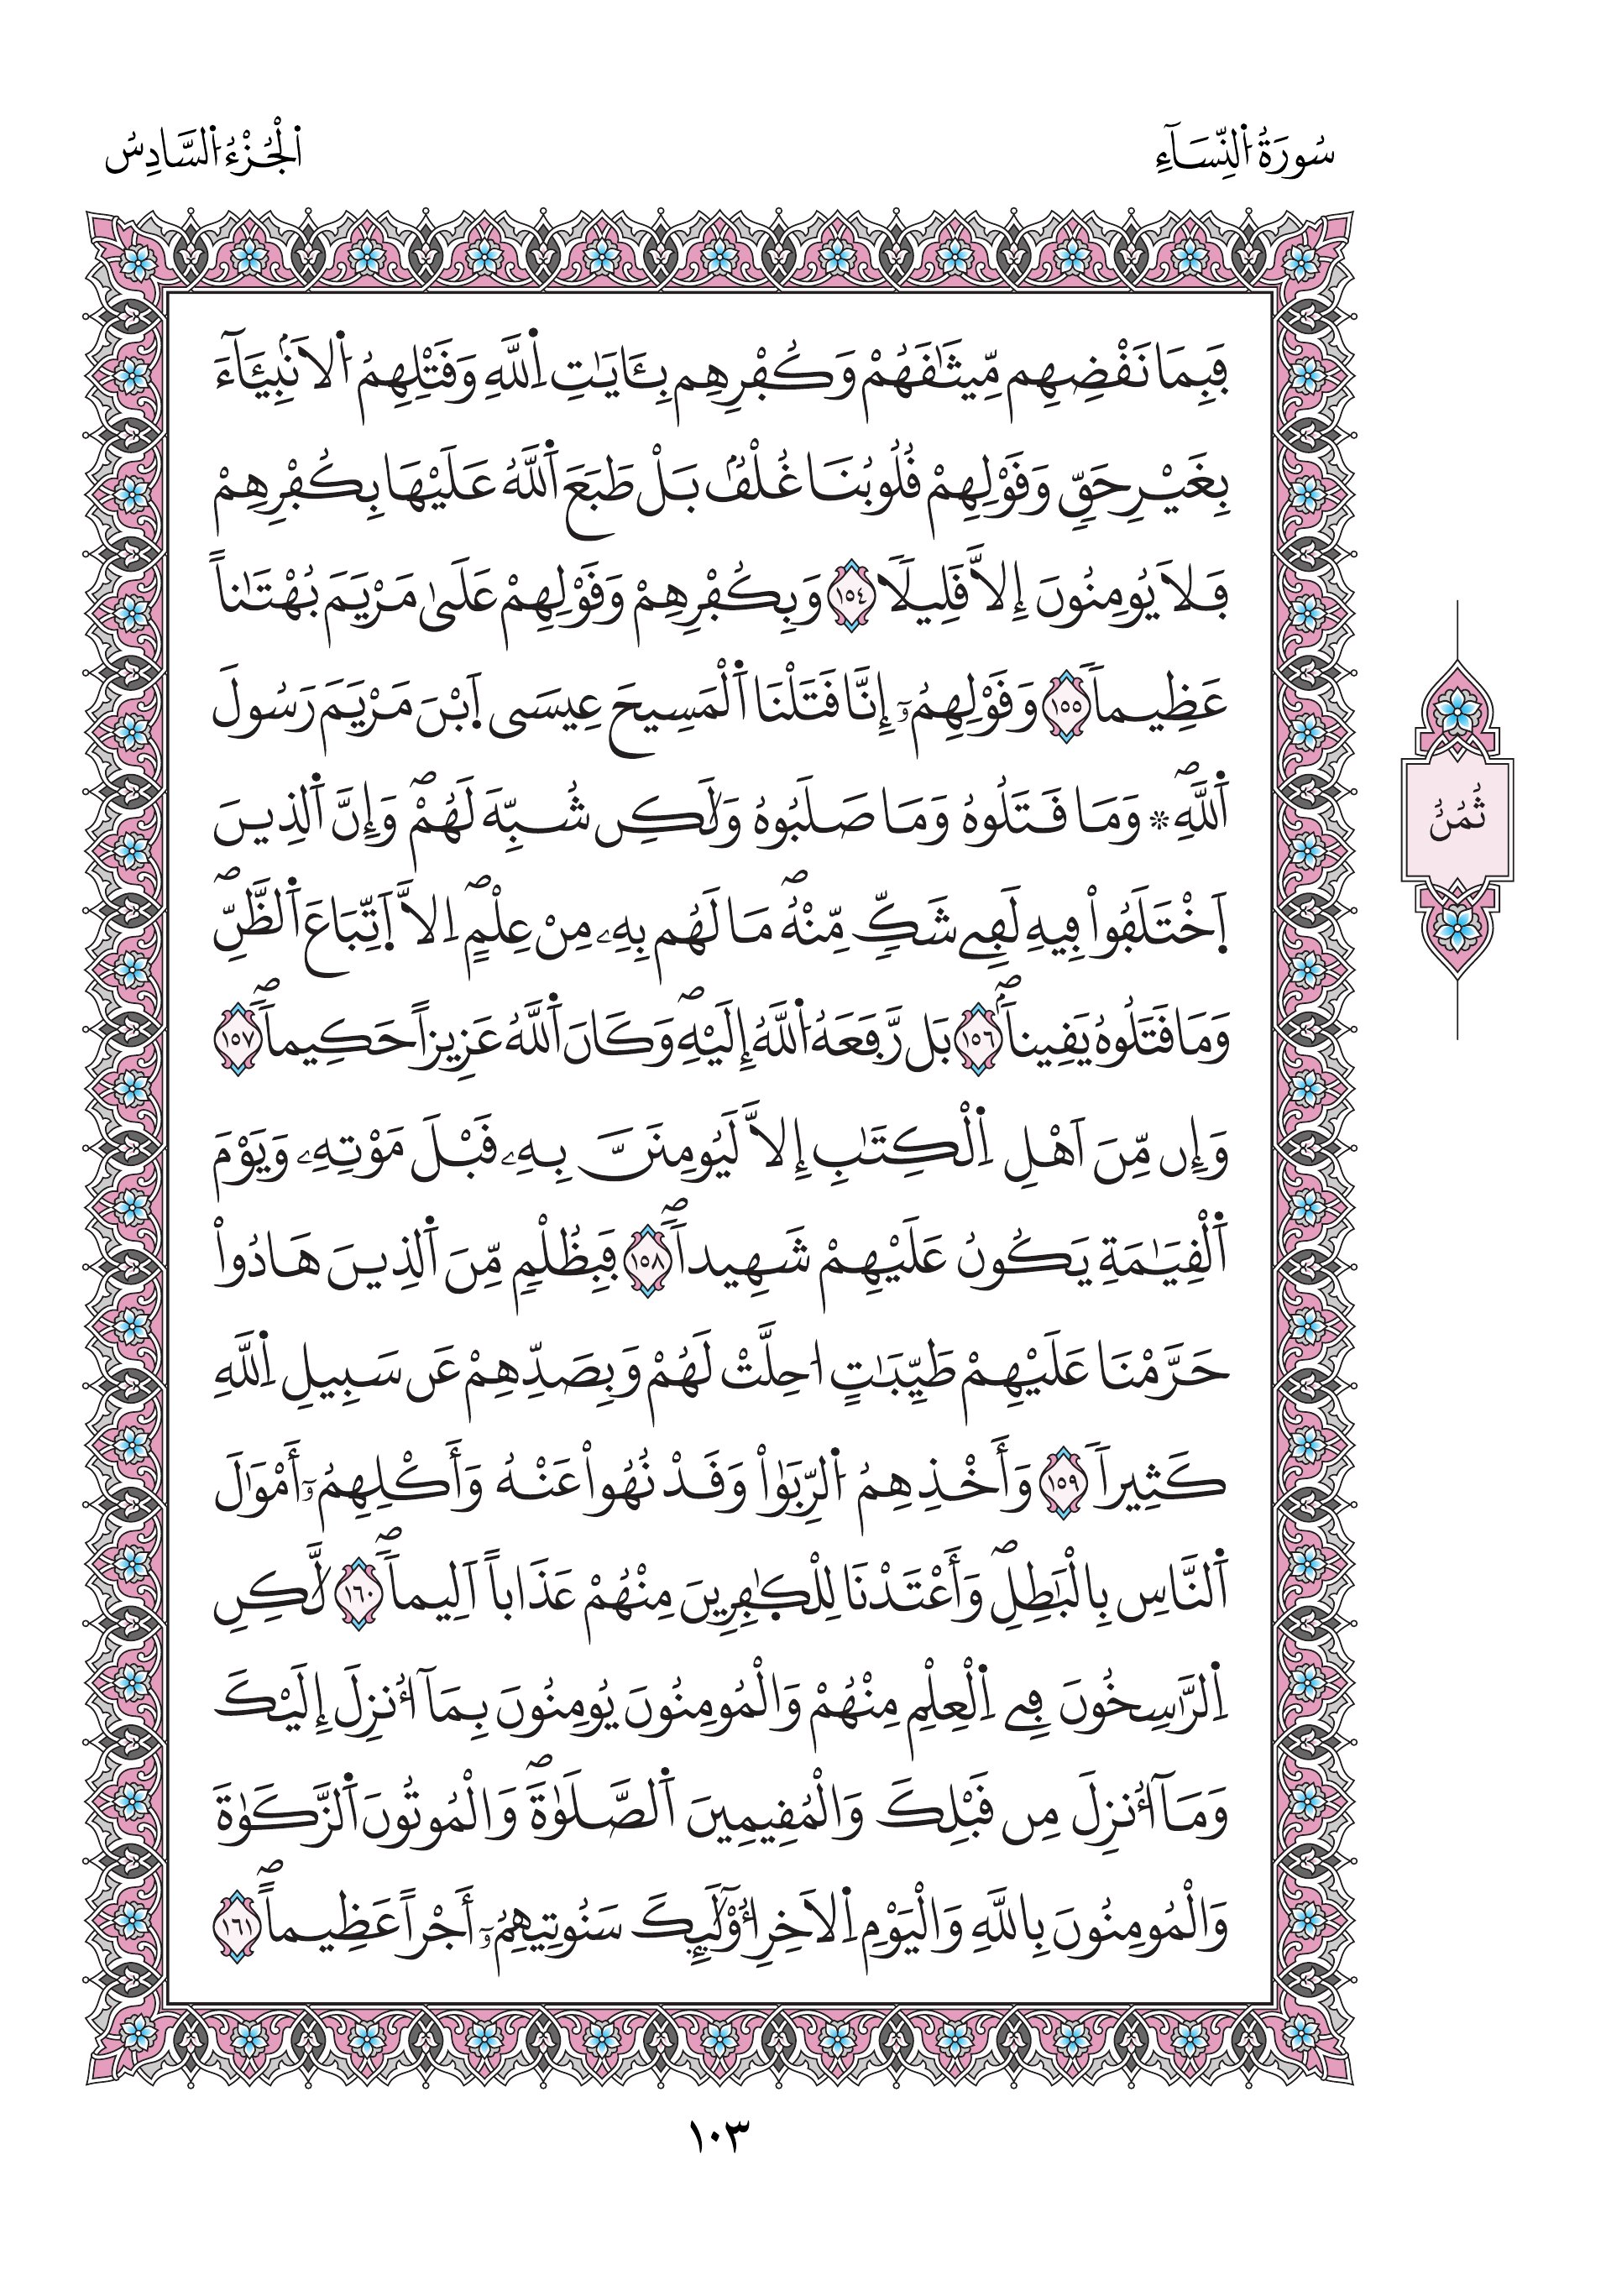 سُورَةُ اُ۬لنِّسَآءِ
اَ۬لْجُزْءُ اُ۬لسَّادِسُ
فَبِمَا نَقْضِهِم مِّيثَٰقَهُمْ وَكُفْرِهِم بِـَٔايَٰتِ اِ۬للَّهِ وَقَتْلِهِمُ اُ۬لَانۢبِيَآءَ
بِغَيْرِ حَقّٖ وَقَوْلِهِمْ قُلُوبُنَا غُلْفُۢ بَلْ طَبَعَ اَ۬للَّهُ عَلَيْهَا بِكُفْرِهِمْ
فَلَا يُومِنُونَ إِلَّا قَلِيلاٗ ١٥٤ وَبِكُفْرِهِمْ وَقَوْلِهِمْ عَلَىٰ مَرْيَمَ بُهْتَٰناً
عَظِيماٗ ١٥٥ وَقَوْلِهِمُۥٓ إِنَّا قَتَلْنَا اَ۬لْمَسِيحَ عِيسَى اَ۪بْنَ مَرْيَمَ رَسُولَ
اَ۬للَّهِۖ * وَمَا قَتَلُوهُ وَمَا صَلَبُوهُ وَلَٰكِن شُبِّهَ لَهُمْۖ وَإِنَّ اَ۬لذِينَ
اَ۪خْتَلَفُواْ فِيهِ لَفِے شَكّٖ مِّنْهُۖ مَا لَهُم بِهِۦ مِنْ عِلْمٍۖ اِلَّا اَ۪تِّبَاعَ اَ۬لظَّنِّۖ
وَمَا قَتَلُوهُ يَقِيناَۢۖ ١٥٦ بَل رَّفَعَهُ اُ۬للَّهُ إِلَيْهِۖ وَكَانَ اَ۬للَّهُ عَزِيزاً حَكِيماٗۖ ١٥٧
وَإِن مِّنَ اَهْلِ اِ۬لْكِتَٰبِ إِلَّا لَيُومِنَنَّ بِهِۦ قَبْلَ مَوْتِهِۦ وَيَوْمَ
اَ۬لْقِيَٰمَةِ يَكُونُ عَلَيْهِمْ شَهِيداٗۖ ١٥٨ فَبِظُلْمٖ مِّنَ اَ۬لذِينَ هَادُواْ
حَرَّمْنَا عَلَيْهِمْ طَيِّبَٰتٍ ا۟حِلَّتْ لَهُمْ وَبِصَدِّهِمْ عَن سَبِيلِ اِ۬للَّهِ
كَثِيراٗ ١٥٩ وَأَخْذِهِمُ اُ۬لرِّبَوٰاْ وَقَدْ نُهُواْ عَنْهُ وَأَكْلِهِمُۥٓ أَمْوَٰلَ
اَ۬لنَّاسِ بِالْبَٰطِلِۖ وَأَعْتَدْنَا لِلْكٰ۪فِرِينَ مِنْهُمْ عَذَاباً اَلِيماٗۖ ١٦٠ لَّٰكِنِ
اِ۬لرَّٰسِخُونَ فِے اِ۬لْعِلْمِ مِنْهُمْ وَالْمُومِنُونَ يُومِنُونَ بِمَآ أُنزِلَ إِلَيْكَ
وَمَآ أُنزِلَ مِن قَبْلِكَ وَالْمُقِيمِينَ اَ۬لصَّلَوٰةَۖ وَالْمُوتُونَ اَ۬لزَّكَوٰةَ
وَالْمُومِنُونَ بِاللَّهِ وَالْيَوْمِ اِ۬لَاخِرِ أُوْلَٰٓئِكَ سَنُوتِيهِمُۥٓ أَجْراً عَظِيماًۖ ١٦١
ثُمُنٌ
١٠٣